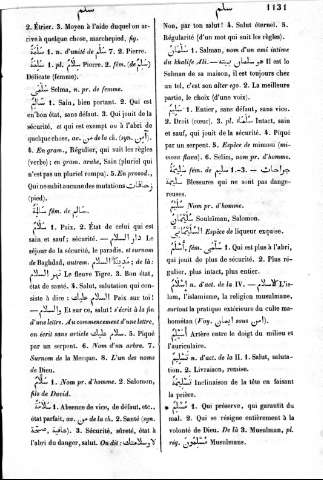 سلم
سلم 1131
2. Étrier. 3. Moyen à l'aide duquel on ar-
rive à quelque chose, marchepied, fig.
سَلْمَةٌ 1. n. d'unité de سَلْمٌ 7. 2. Pierre.
1. pl. Pierre. 2. fém. (de سَلِمٌ)
Délicate (femme).
سَلْمَى Selma, n. pr. de femme.
سَالِمٌ 1. Sain, bien portant. 2. Qui est
en bon état, sans défaut. 3. Qui jouit de la
sécurité, et qui est exempt ou à l'abri de
quelque chose, av. من de la ch. (syn. آمن).
4. En gram., Régulier, qui suit les règles
(verbe) ; en gram. arabe, Sain (pluriel qui
n'est pas un pluriel rompu). 5. En prosod.,
Qui ne subit aucune des mutations زحافات
(pied).
سَالِمَةٌ fém. de سالم.
سَلَامٌ 1. Paix. 2. État de celui qui est
sain et sauf; sécurité. — دار السلام Le
séjour de la sécurité, le paradis, et surnom
de Baghdad, autrem. مدينة السلام ; de là :
نهر السلام Le fleuve Tigre. 3. Bon état,
état de santé. 4. Salut, salutation qui con-
siste à dire : السلام عليك Paix sur toi !
والسلام — Et sur ce, salut ! s'écrit à la fin
d'une lettre. Au commencement d'une lettre,
on écrit sans article سلام عليك 5. Piqué
par un serpent. 6. Nom d'un arbre. 7.
Surnom de la Mecque. 8. L'un des noms
de Dieu.
سَلَامٌ 1. Nom pr. d'homme. 2. Salomon,
fils de David.
سَلَامَةٌ 1. Absence de vices, de défaut, etc.,
état parfait, av. من de la ch. 2. Santé (syn.
صحة, عافية). 3. Sécurité, sûreté, état à
l'abri du danger, salut. On dit : لا وسلامتك
Non, par ton salut ! 4. Salut éternel. 5.
Régularité (d'un mot qui suit les règles).
سَلْمَانُ 1. Salman, nom d'un ami intime
du khalife Ali. — هو سلمان بيته Il est le
Salman de sa maison, il est toujours chez
un tel, c'est son alter ego. 2. La meilleure
partie, le choix (d'une voix).
سَلِيمٌ 1. Entier, sans défaut, sans vice.
2. Droit (cœur). 3. pl. Intact, sain
et sauf, qui jouit de la sécurité. 4. Piqué
par un serpent. 5. Espèce de mimosa (mi-
mosa flava). 6. Selim, nom pr. d'homme.
سَلِيمَةٌ fém. de سليم 1.-3. — جراحات
سليمة Blessures qui ne sont pas dange-
reuses.
Nom pr. d'homme.
سُلَيْمَانُ Souléïman, Salomon.
Espèce de liqueur exquise.
أَسْلَمُ, fém. سُلْمَى 1. Qui est plus à l'abri,
qui jouit de plus de sécurité. 2. Plus ré-
gulier, plus intact, plus entier.
إِسْلَامٌ n. d'act. de la IV. — الإسلام L'is-
lam, l'islamisme, la religion musulmane,
surtout la pratique extérieure du culte ma-
hométan (Voy. إيمان sous أمن).
Artère entre le doigt du milieu et
l'auriculaire.
تَسْلِيمٌ n. d'act. de la II. 1. Salut, saluta-
tion. 2. Livraison, remise.
تَسْلِيمَةٌ Inclinaison de la tête en faisant
la prière.
مُسْلِمٌ 1. Qui préserve, qui garantit du
mal. 2. Qui se résigne entièrement à la
volonté de Dieu. De là 3. Musulman, pl.
rég. مُسْلِمُونَ Musulmans.